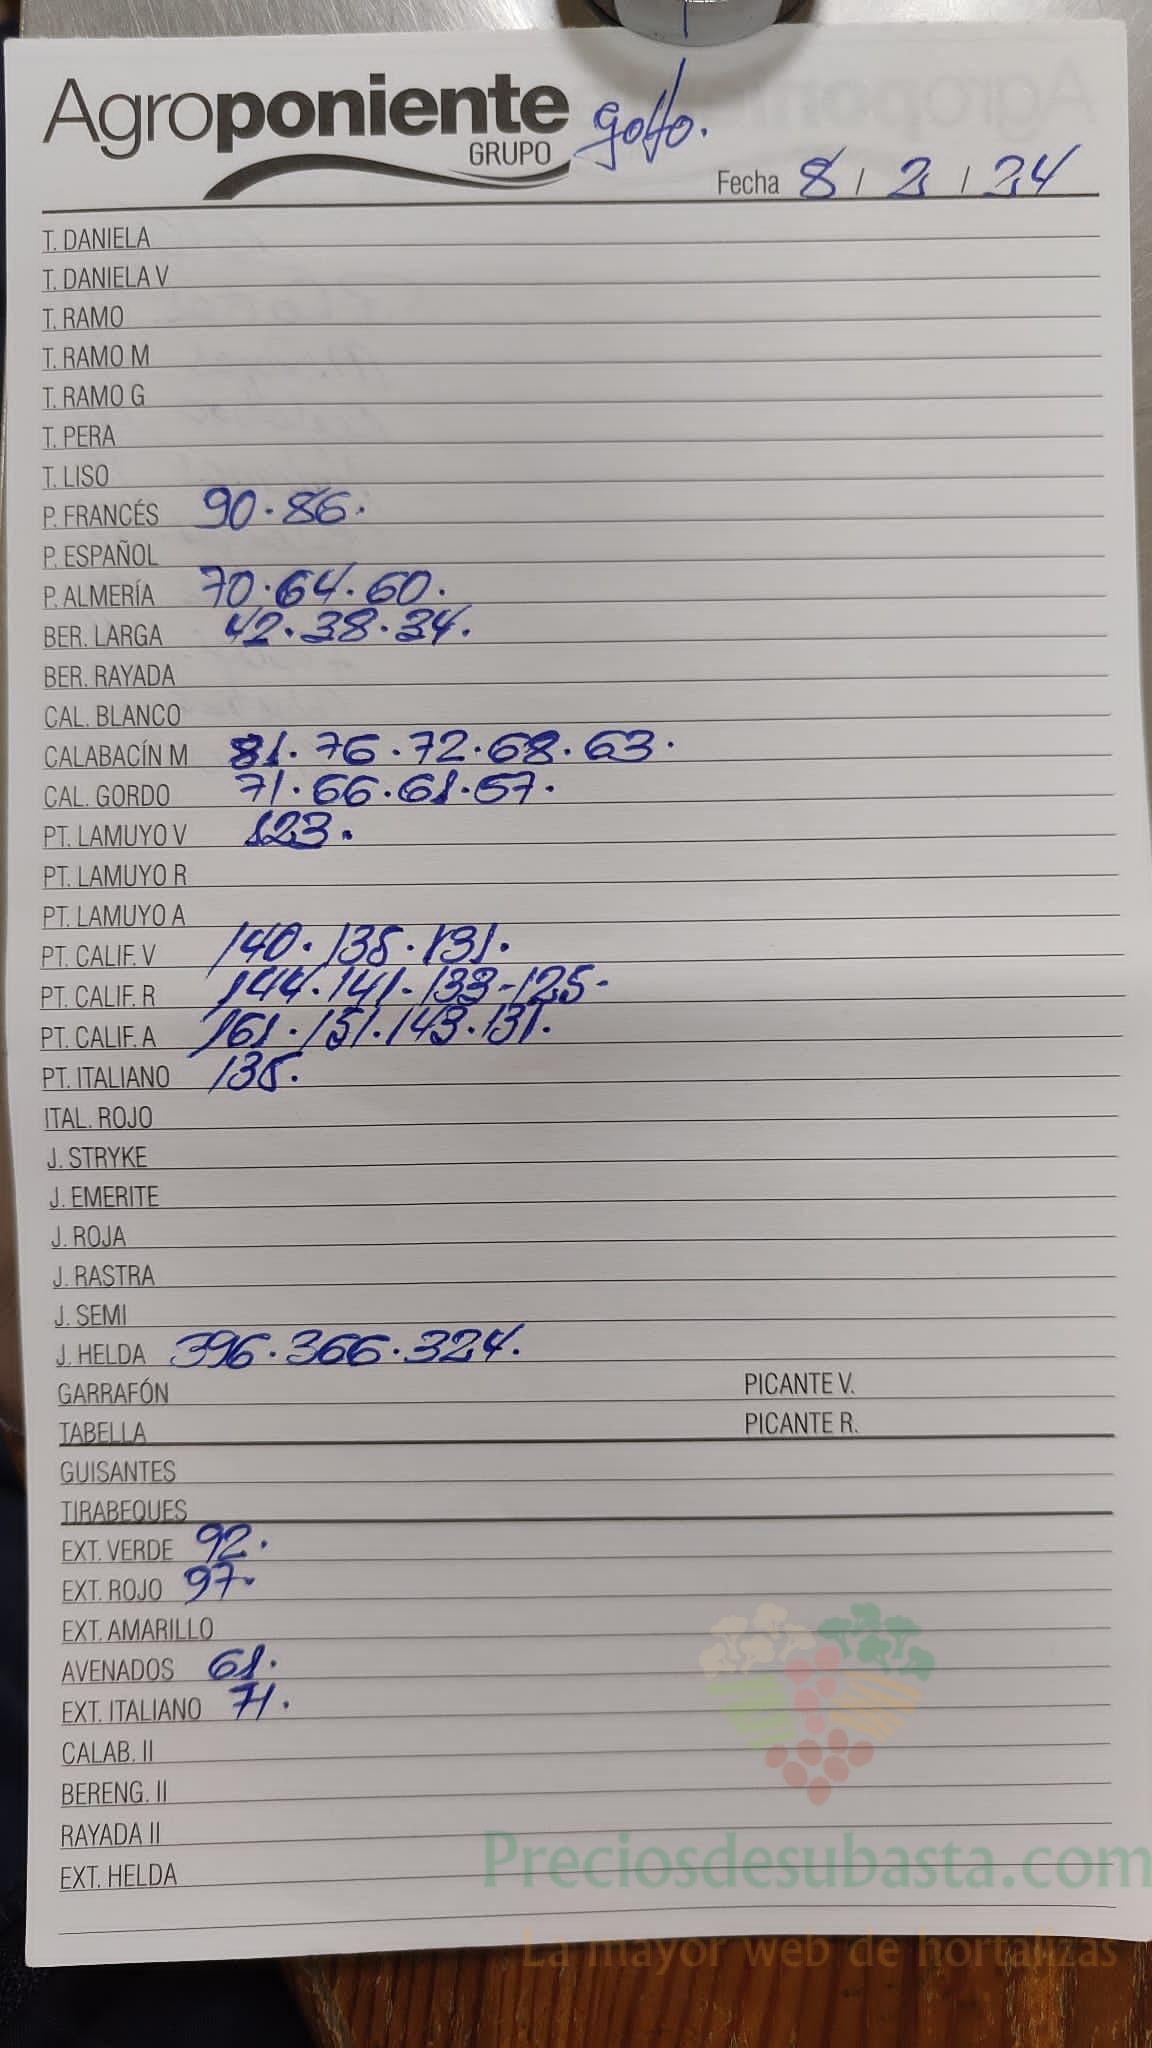 Agroponiente
GRUPO
golfo.
Fecha 8 / 2 / 24
T. DANIELA
T. DANIELA V
T. RAMO
T. RAMO M
T. RAMO G
T. PERA
T. LISO
P. FRANCÉS 90. 86.
P. ESPAÑOL
P. ALMERÍA 70. 64. 60.
BER. LARGA 42. 38. 34.
BER. RAYADA
CAL. BLANCO
CALABACÍN M 81. 76. 72. 68. 63.
CAL. GORDO 71. 66. 61. 57.
PT. LAMUYO V 123.
PT. LAMUYO R
PT. LAMUYO A
PT. CALIF. V 140. 135. 131.
PT. CALIF. R 144. 141. 133-125-
PT. CALIF. A 161. 151. 143. 131.
PT. ITALIANO 135.
ITAL. ROJO
J. STRYKE
J. EMERITE
J. ROJA
J. RASTRA
J. SEMI
J. HELDA 396. 366. 324.
GARRAFÓN PICANTE V.
TABELLA PICANTE R.
GUISANTES
TIRABEQUES
EXT. VERDE 92.
EXT. ROJO 97.
EXT. AMARILLO
AVENADOS 61.
EXT. ITALIANO 71.
CALAB. II
BERENG. II
RAYADA II
EXT. HELDA
Preciosdesubasta.com
La mayor web de hortalizas